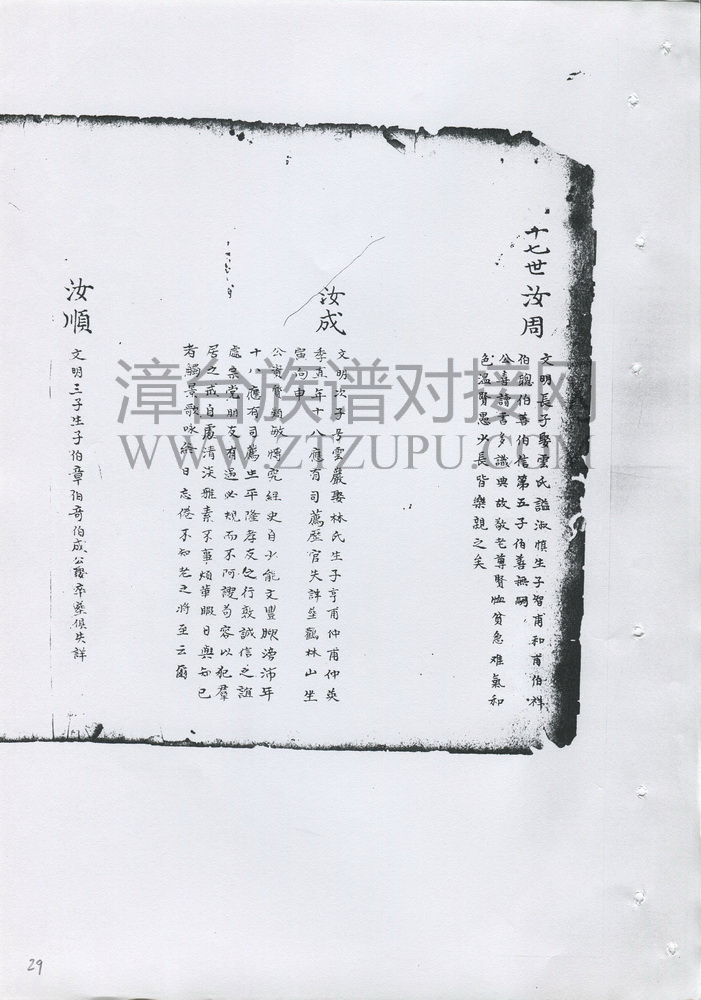 十七世 汝周
文明長子娶雲氏諡淑慎生子智甫和甫伯祥
伯 伯善伯信第五子伯善無嗣
公喜讀書多識典故敬老尊賢恤貧急难氣和
色温賢愚少長皆樂親之矣
汝成
文明次子号雲嚴娶林氏生子亨甫仲甫仲英
季直年十八應有司薦歷官失詳塟 林山坐
寅向申
公資質穎敏博究經史自少能文豐腴滂沛年
十八應有司薦生平隆孝友之行敦誠信之誼
處宗党朋友有過必規而不阿謬苟容以犯羣
居之戒自處清淡雅素不事煩華暇日與知己
者觴景歌咏終日忘倦不知老之將至云爾
汝順
文明三子生子伯章伯奇伯成公 卒塟俱失詳
漳台族谱对接网
WWW.ZTZUPU.COM
29